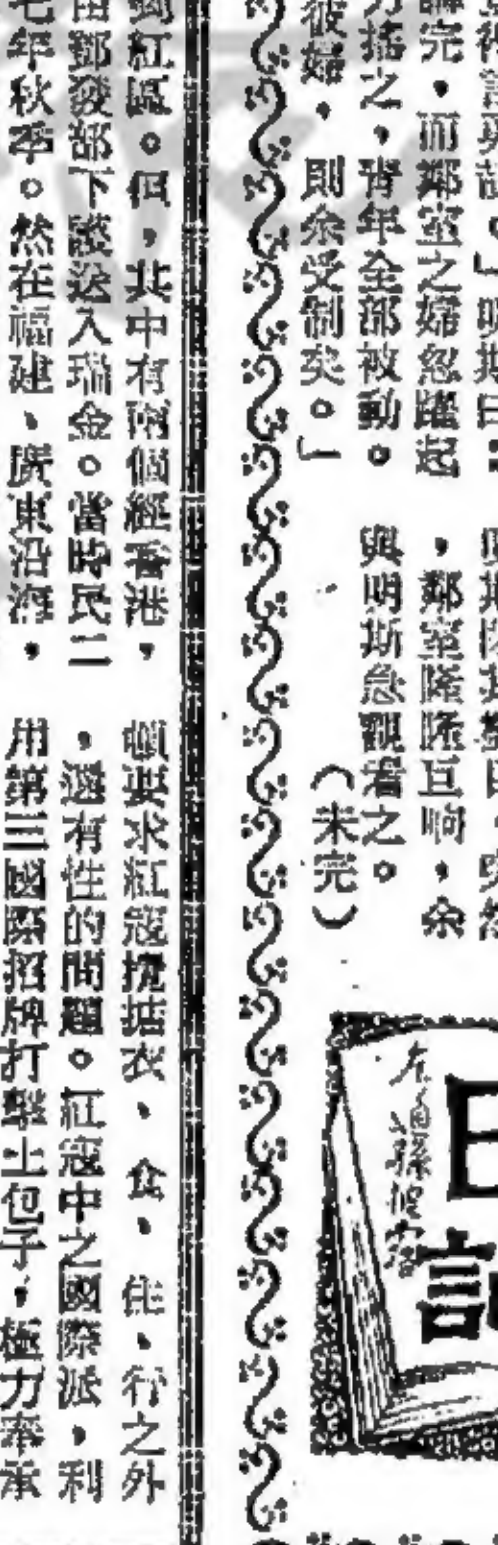 論完，而鄰室之婦忽躍起
力搖之，青年全部被動。
彼婦，則余受制矣。」
，鄰室隆隆巨响，余
與明斯急觀看之。
（未完）
日記
到紅區。但，其中有兩個經香港，
由鄧發部下護送入瑞金。當時民二
七年秋季。然在福建、廣東沿海，
頓要求紅寇攪掂衣、食、住、行之外
，還有性的問題。紅寇中之國際派，利
用第三國際招牌打擊土包子，極力奉承